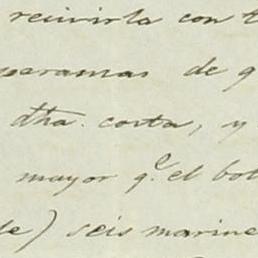 recivirla con t
paramas de q
dha. costa, y
mayor q.e el bot
de) seis marine